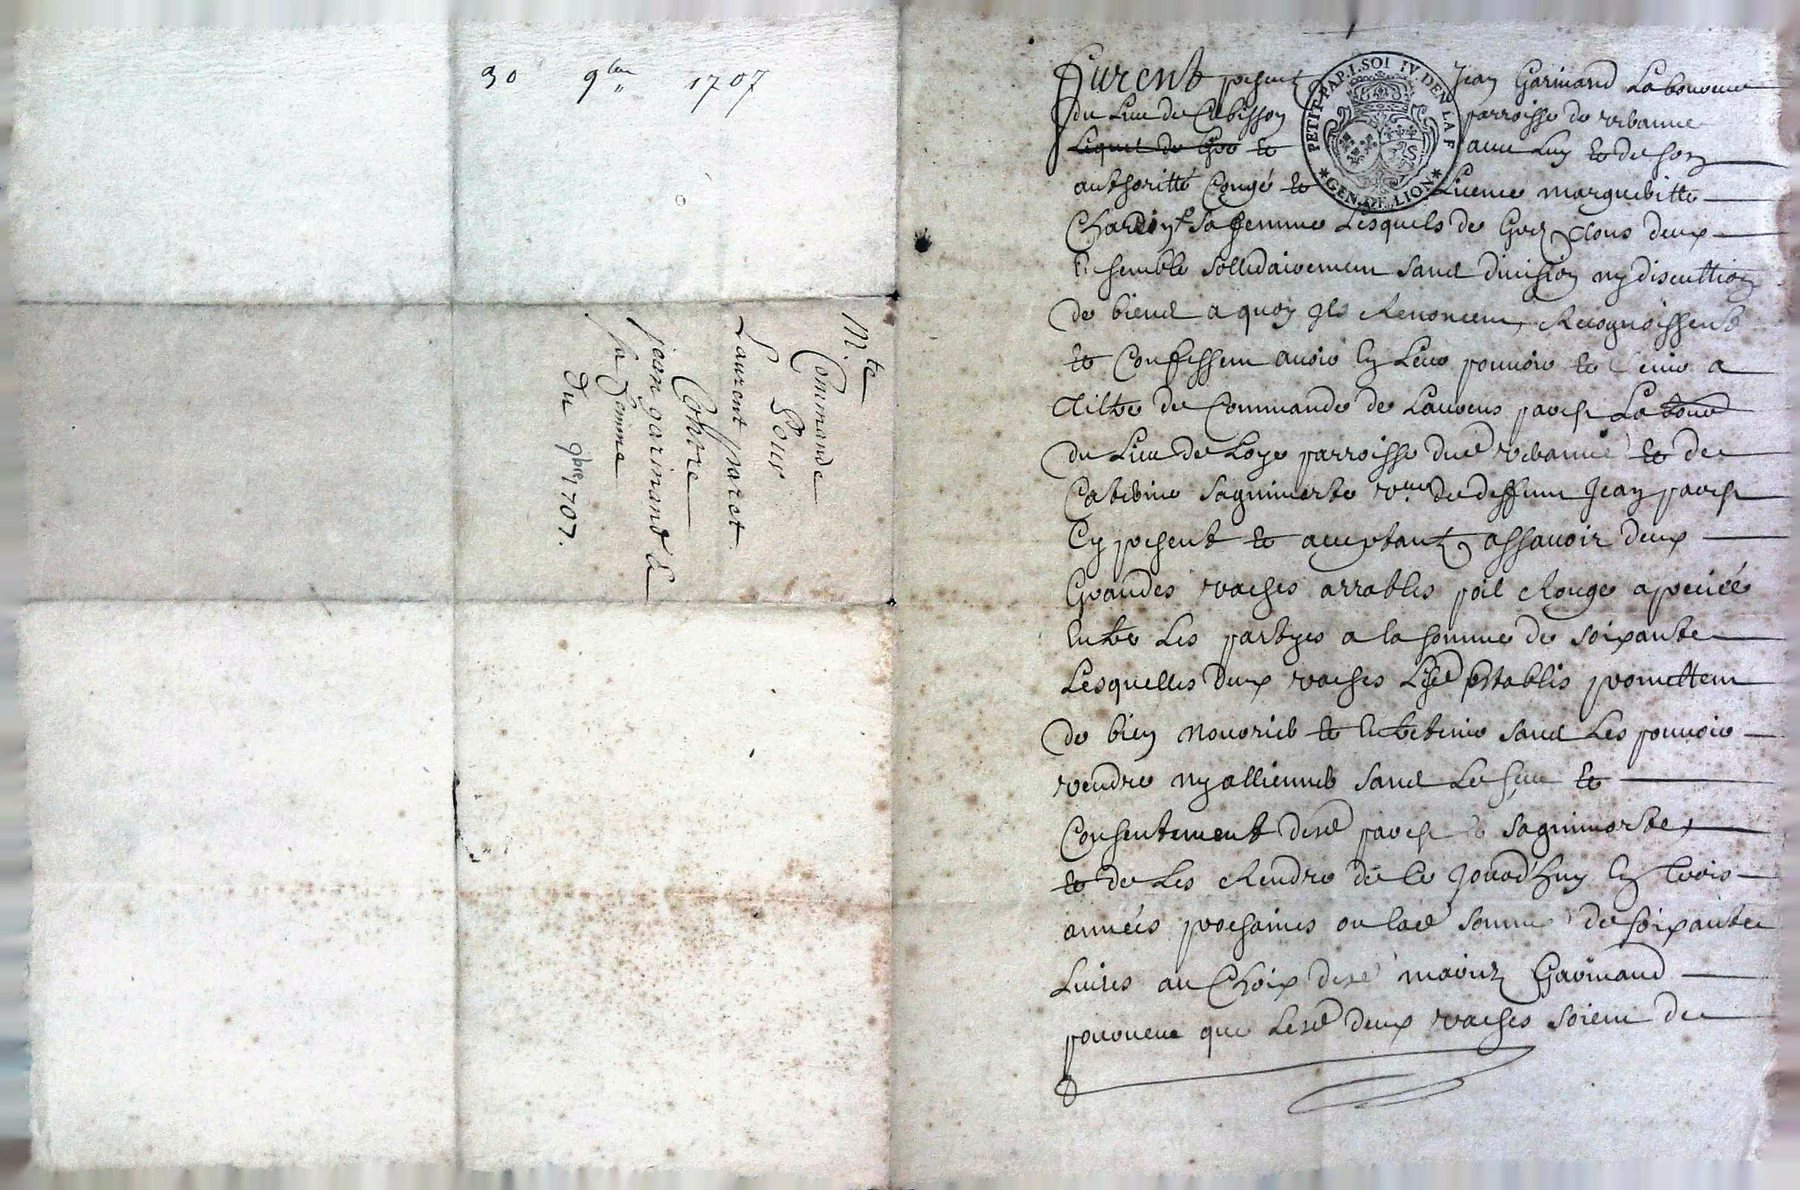 30 9bre 1707
Mte
Commande
Pour
Laurent paret
Contre
jean garinand &
sa femme
du 9bre 1707.
PETIT PAP. 1. SOL IV. DEN. LA F
* GEN. DE LION *
Furent present Jean Garinand Laboureur
du Lieu de parroisse de
Lequel de Gré et avec Luy et de son
authoritté Congé et Licence margueritte
sa femme Lesquels de Gré tous deux
Ensemble sollidairement sans division ny discuttion
de biens a quoy Ils Renoncent, Recognoissent
et Confessent avoir En Leur pouvoir et tenir a
Tiltre de Commande de Laurens paret Labour
du Lieu de Loye parroisse dud et de
Catherine vve de deffunt Jean paret
Cy present et acceptantz assavoir deux
Grandes vaches arrables poil Rouge apreciées
Entre Les partyes a la somme de soixante
Lesquelles deux vaches Lesd Establis promettent
de bien nourrir et Entretenir sans Les pouvoir
vendre ny allienner sans Le sceu et
Consentement desd paret et
et de Les Rendre de Ce Jourd'huy En trois
années prochaines ou lad somme de soixante
Livres au Choix desd mariez Garinand
pourveu que Lesd deux vaches soient de